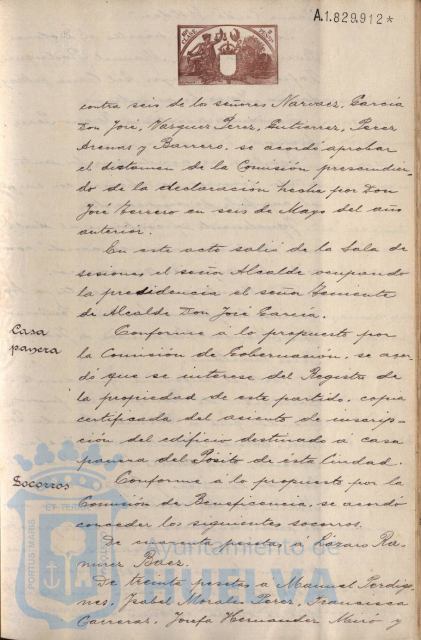 A.1.829.912*
contra seis de los señores Narvaez, Garcia
Don José, Vasquez Perez, Gutierrez, Perez
Arenas y Barrero, se acordó aprobar
el dictamen de la Comisión prescindien-
do de la declaración hecha por Don
José Ferrero en seis de Mayo del año
anterior.
En este acto salió de la Sala de
sesiones el señor Alcalde ocupando
la presidencia el señor Teniente
de Alcalde Don José Garcia.
Casa
panera
Conforme á lo propuesto por
la Comisión de Gobernación, se acor-
dó que se interese del Registro de
la propiedad de este partido, copia
certificada del asiento de inscrip-
ción del edificio destinado á casa
panera del Pósito de ésta Ciudad.
Socorros
Conforme á lo propuesto por la
Comisión de Beneficencia, se acordó
conceder los siguientes socorros.
De cuarenta pesetas á Lázaro Ra-
mirez Baez.
De treinta pesetas á Manuel Perdigo-
nes, Isabel Morales Perez, Francisca
Carreras, Josefa Hernandez Muro y
Ayuntamiento de
HUELVA
PORTUS MARIS
ET TERRAE